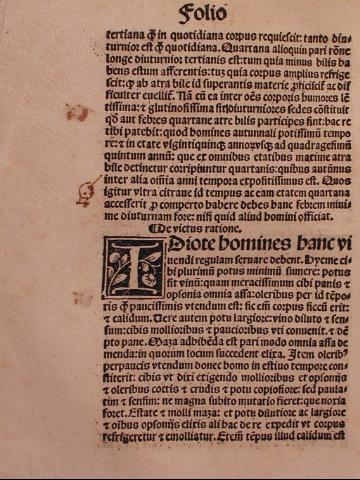 Folio
tertiana ꝙ̃ in quotidiana corpus requiescit: tanto diu-
turnior est ꝙ̃ quotidiana. Quartana alioquin pari rõne
longe diuturnior tertianis est: tum quia minus bilis ha
bens estum afferentis: tuʒ quia corpus amplius refrige
scit: ꝙ ab atra bile id superantis materie ꝓficiscit̃ ac dif
ficulter euellit̃. Nã cũ ea inter oẽs corporis humores lẽ
tissima: ⁊ glutinosissima sit: diuturniores sedes cõstituit
qđ aut febres quartane atre bilis participes sint: hac re
tibi patebit: quod homines autunnali potissimũ tempo
re: ⁊ in etate vigintiquinqʒ annorʒ vsqʒ ad quadragesimũ
quintum annũ: que ex omnibus etatibus maxime atra
bile detinetur corripiunt̃ quartanis: quibus autũnus
inter alia oĩa anni tempora expositissimus est. Quos
igitur vltra citraue id tempus ac eam etatem quartana
accesserit ꝓ comperto habere debes hanc febrem mini-
me diuturnam fore: nisi quid aliud homini officiat.
De victus ratione.
IDiote homines hanc vi
uendi regulam seruare debent. Hyeme ci-
bi plurimũ potus minimũ sumere: potus
sit vinũ: quam meracissimum cibi panis ⁊
opsonia omnia assa: oleribus per id tẽpo-
ris ꝙ̃ paucissimis vtendum est: sic eñi corpus siccũ erit:
⁊ calidum. Vere autem potu largiore: vino diluto ⁊ sen-
sum: cibis mollioribus ⁊ paucioribus vti conuenit. ⁊ dẽ
pto pane. Maza adhibẽda est pari modo omnia assa de
menda: in quorum locum succedent elixa. Item olerib⁹
perpaucis vtendum donec homo in estiuo tempore con-
stiterit: cibis vt dixi etigendo mollioribus et opsonijs
⁊ oleribus coctis ⁊ crudis ⁊ potu copiosiore: sed paula-
tim ⁊ sensim: ne magna subito mutatio fieret: que noxia
foret. Estate ⁊ molli maza: et potu dilutiore ac largiore
⁊ oibus opsonijs elixis ali hac de re expedit vt corpus
refrigeretur ⁊ emolliatur. Eteñi tẽpus illud calidum est